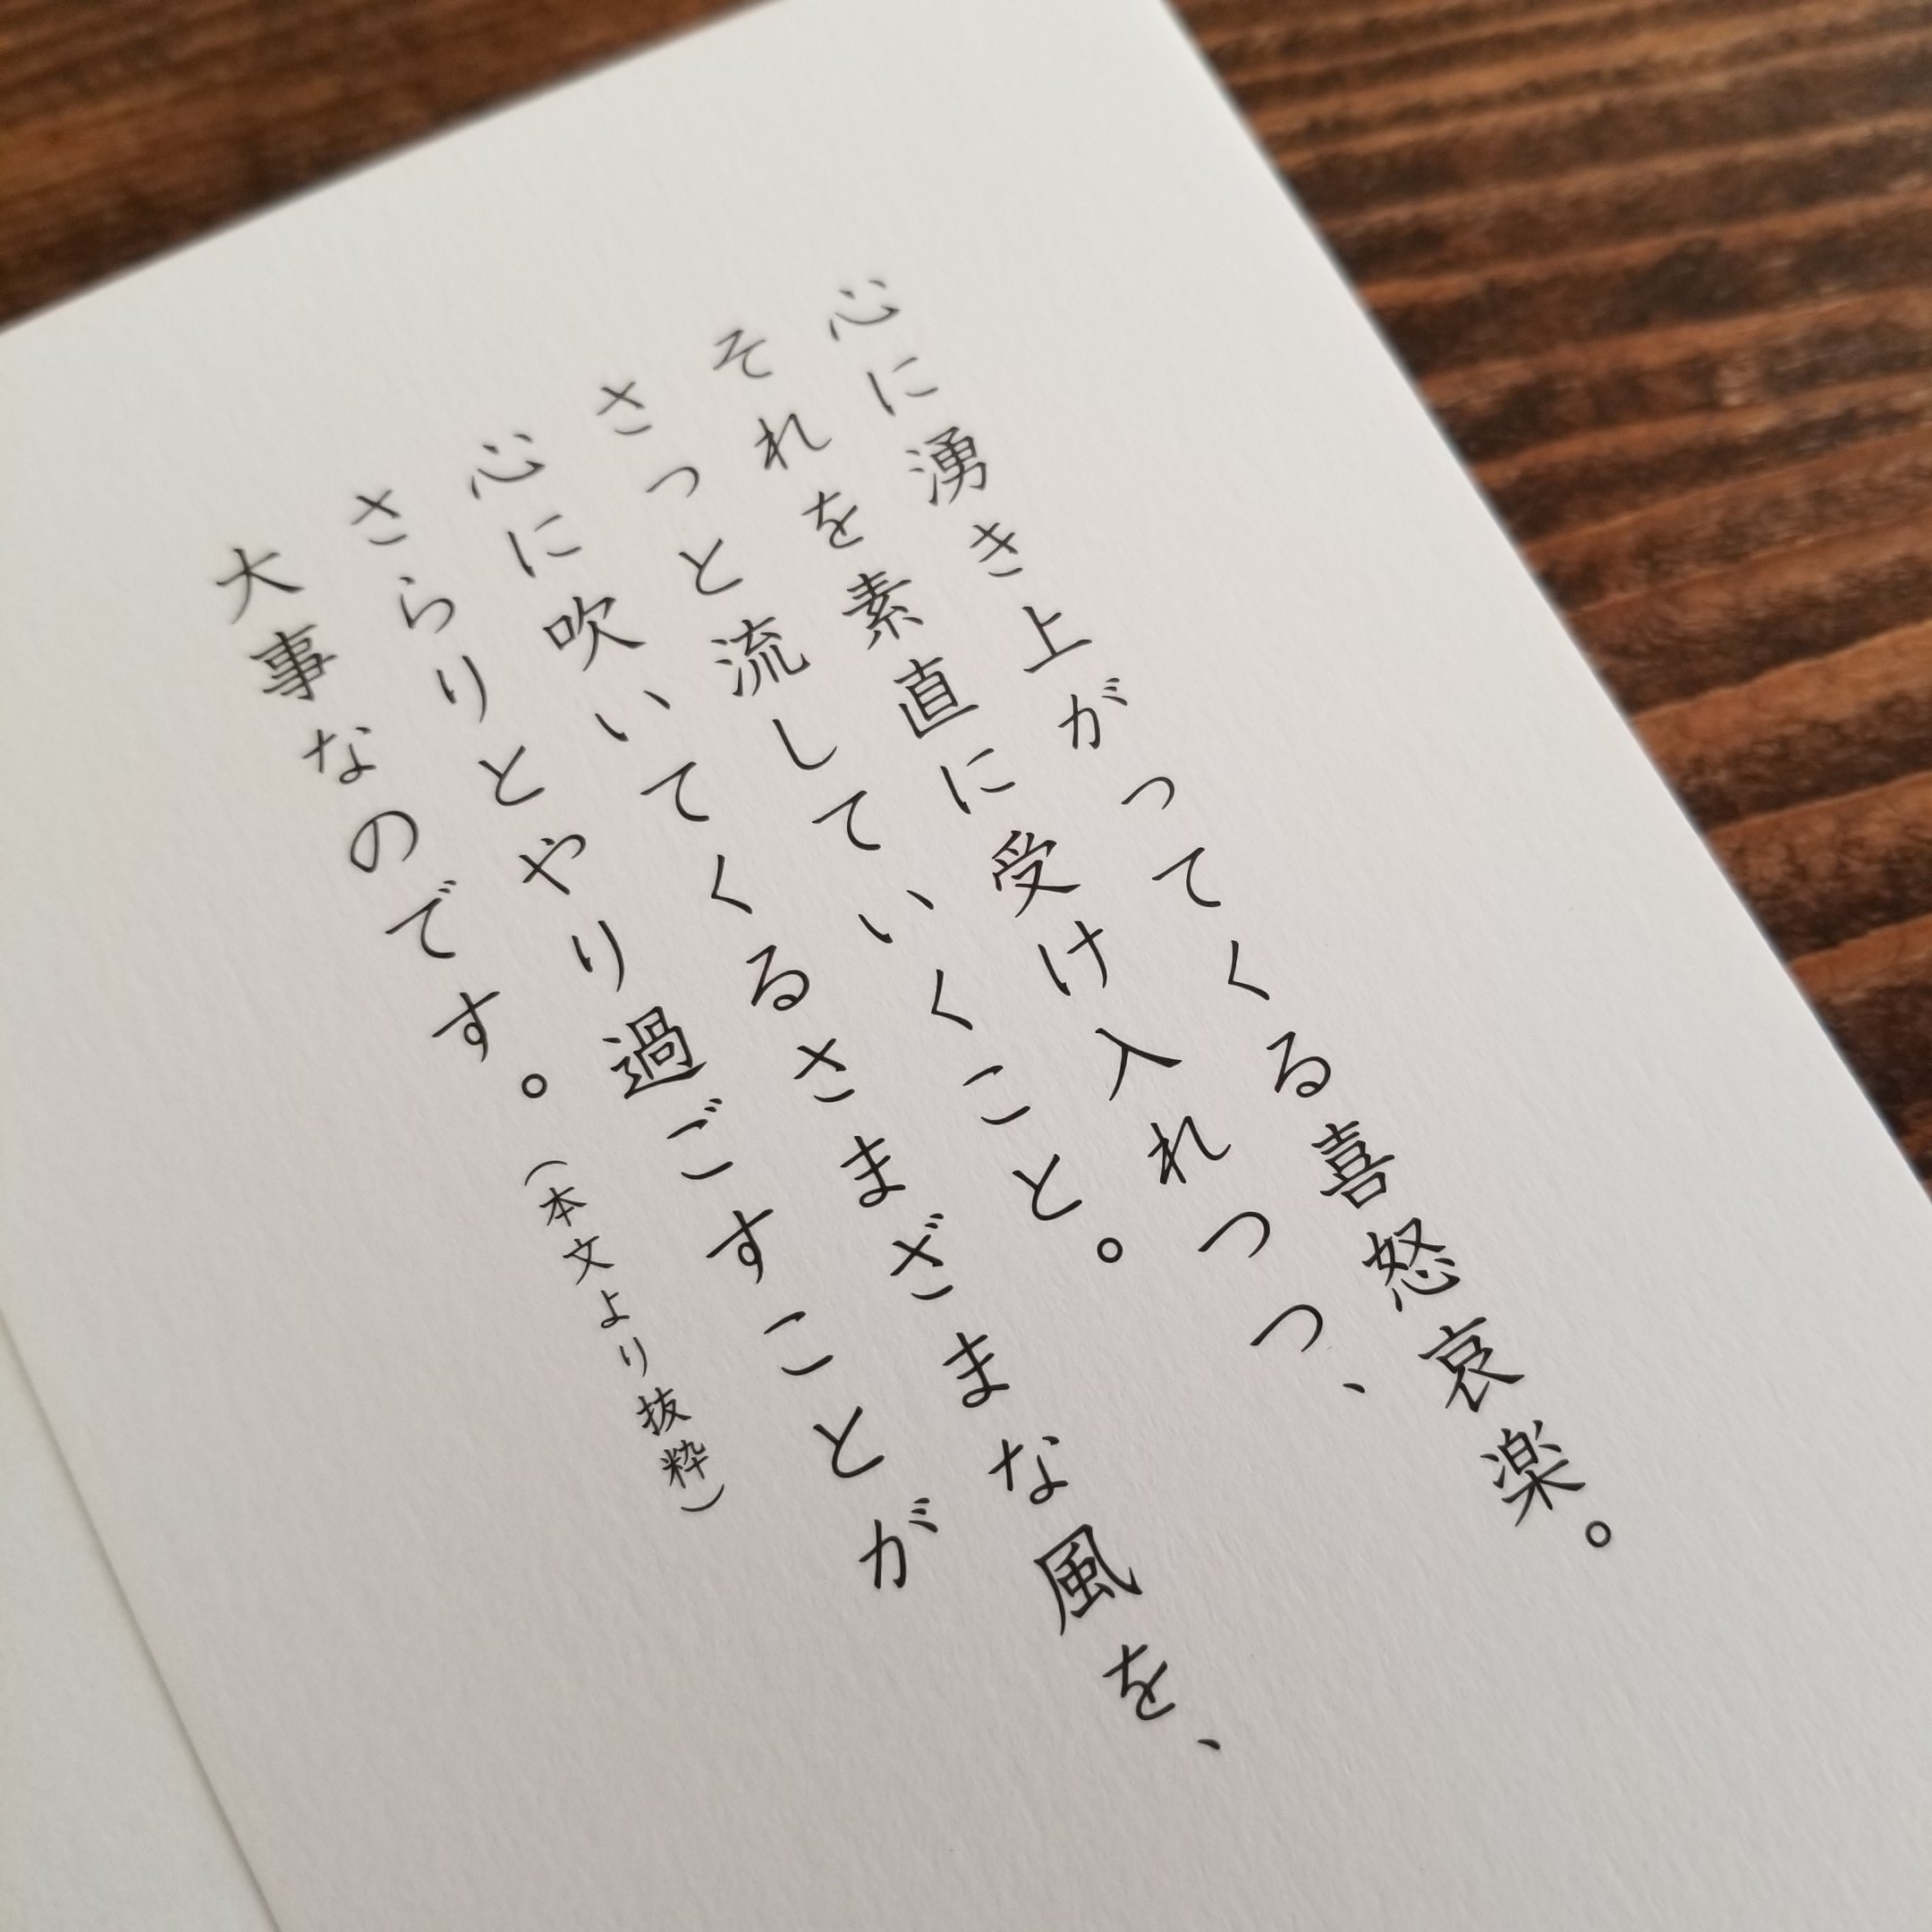 心に湧き上がってくる喜怒哀楽。
それを素直に受け入れつつ、
さっと流していくこと。
心に吹いてくるさまざまな風を、
さらりとやり過ごすことが
大事なのです。（本文より抜粋）